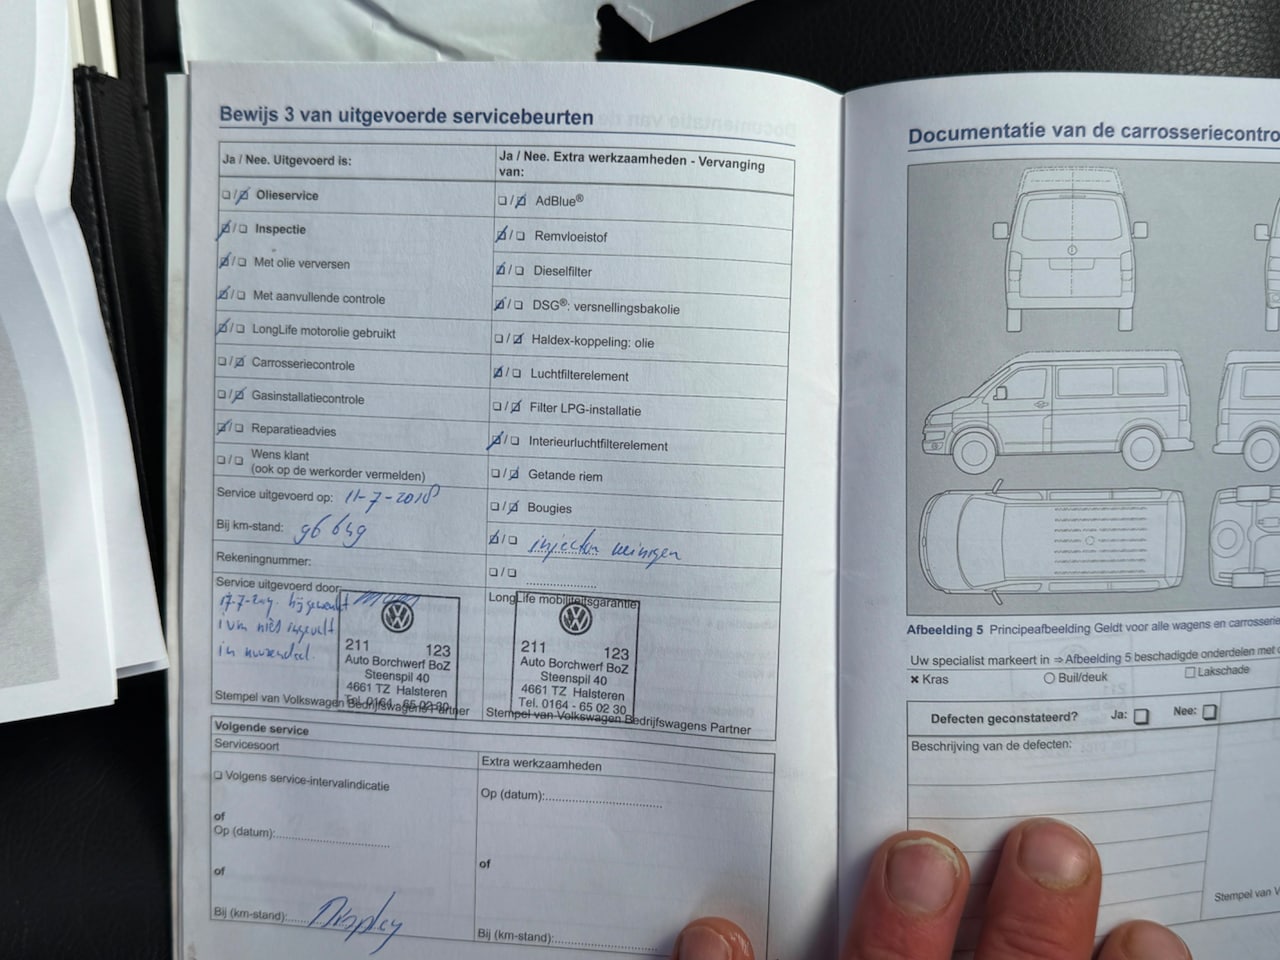 Bewijs 3 van uitgevoerde servicebeurten
Ja / Nee. Uitgevoerd is:
☐/☑ Olieservice
☑/☐ Inspectie
☑/☐ Met olie verversen
☑/☐ Met aanvullende controle
☑/☐ LongLife motorolie gebruikt
☐/☑ Carrosseriecontrole
☐/☑ Gasinstallatiecontrole
☑/☐ Reparatieadvies
☐/☐ Wens klant
(ook op de werkorder vermelden)
Service uitgevoerd op: 11-7-2018
Bij km-stand: 96 649
Rekeningnummer:
Service uitgevoerd door:
bijgewerkt
ivm niet ingevuld
in
211 123
Auto Borchwerf BoZ
Steenspil 40
4661 TZ Halsteren
Tel. 0164 - 65 02 30
Stempel van Volkswagen Bedrijfswagens Partner
Ja / Nee. Extra werkzaamheden - Vervanging
van:
☐/☑ AdBlue®
☑/☐ Remvloeistof
☑/☐ Dieselfilter
☑/☐ DSG®: versnellingsbakolie
☐/☑ Haldex-koppeling: olie
☑/☐ Luchtfilterelement
☐/☑ Filter LPG-installatie
☑/☐ Interieurluchtfilterelement
☐/☑ Getande riem
☐/☑ Bougies
☑/☐ injectoren reinigen
☐/☐ ....................
LongLife mobiliteitsgarantie
211 123
Auto Borchwerf BoZ
Steenspil 40
4661 TZ Halsteren
Tel. 0164 - 65 02 30
Stempel van Volkswagen Bedrijfswagens Partner
Volgende service
Servicesoort
☐ Volgens service-intervalindicatie
of
Op (datum):..............................
of
Bij (km-stand): Display
Extra werkzaamheden
Op (datum):..............................
of
Bij (km-stand):..............................
Documentatie van de carrosseriecontro
Afbeelding 5 Principeafbeelding Geldt voor alle wagens en carrosserie
Uw specialist markeert in ⇒ Afbeelding 5 beschadigde onderdelen met
× Kras ○ Buil/deuk ☐ Lakschade
Defecten geconstateerd? Ja: ☐ Nee: ☐
Beschrijving van de defecten:
Stempel van V